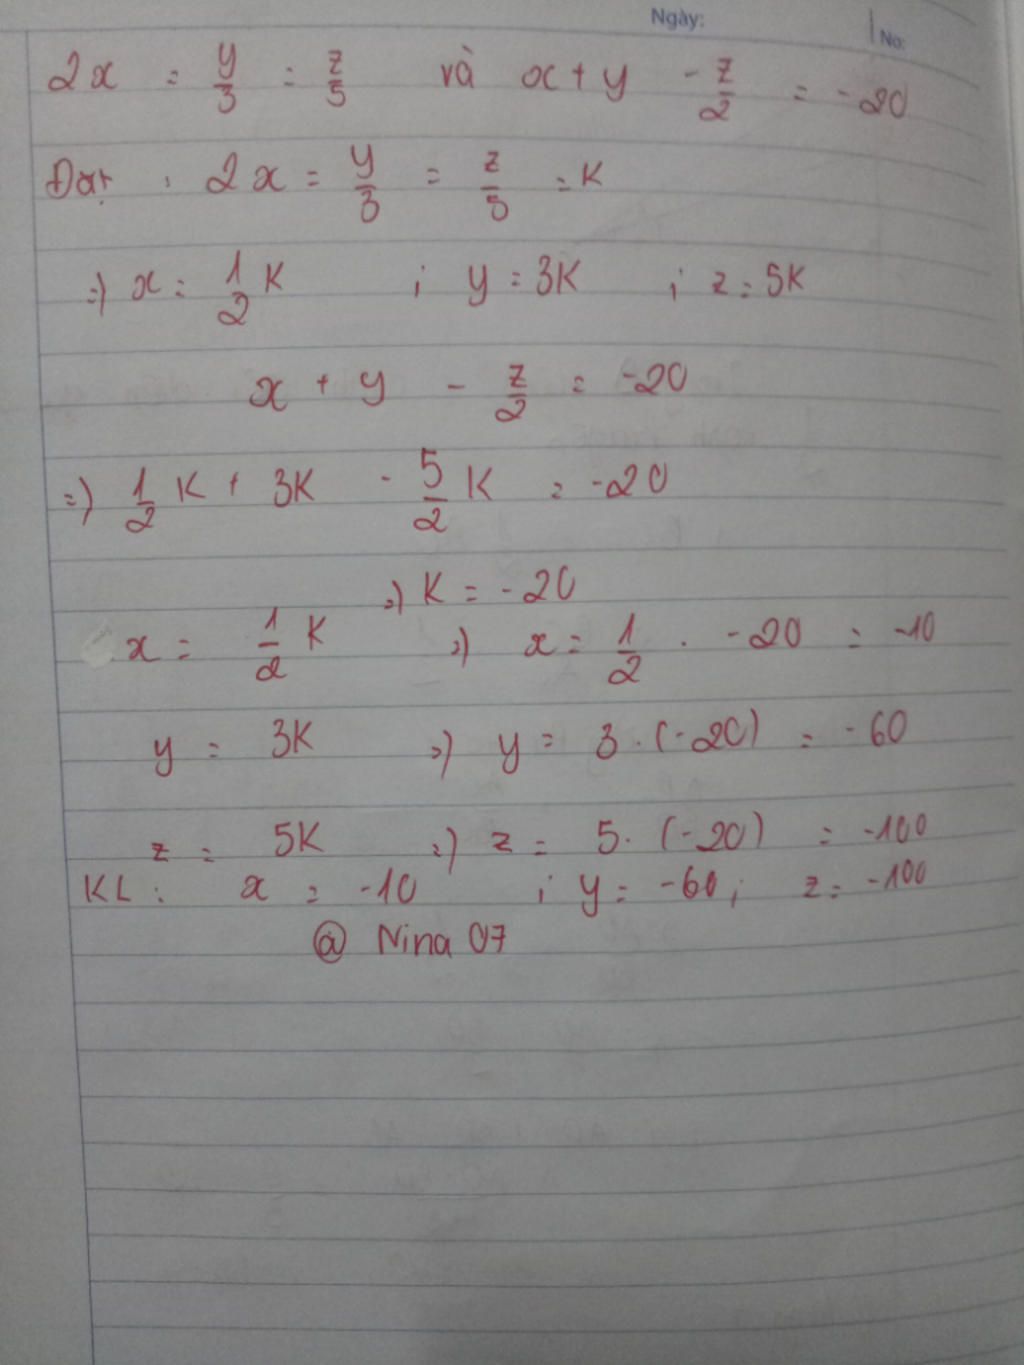 Ngày: No:
2x = y/3 = z/5 và x + y - z/2 = -20
Đặt : 2x = y/3 = z/5 = K
=) x = 1/2 K ; y = 3K ; z = 5K
x + y - z/2 = -20
=) 1/2 K + 3K - 5/2 K = -20
=) K = -20
x = 1/2 K =) x = 1/2 . -20 = -10
y = 3K =) y = 3 . (-20) = -60
z = 5K =) z = 5. (-20) = -100
KL : x = -10 ; y = -60 ; z = -100
@ Nina 07